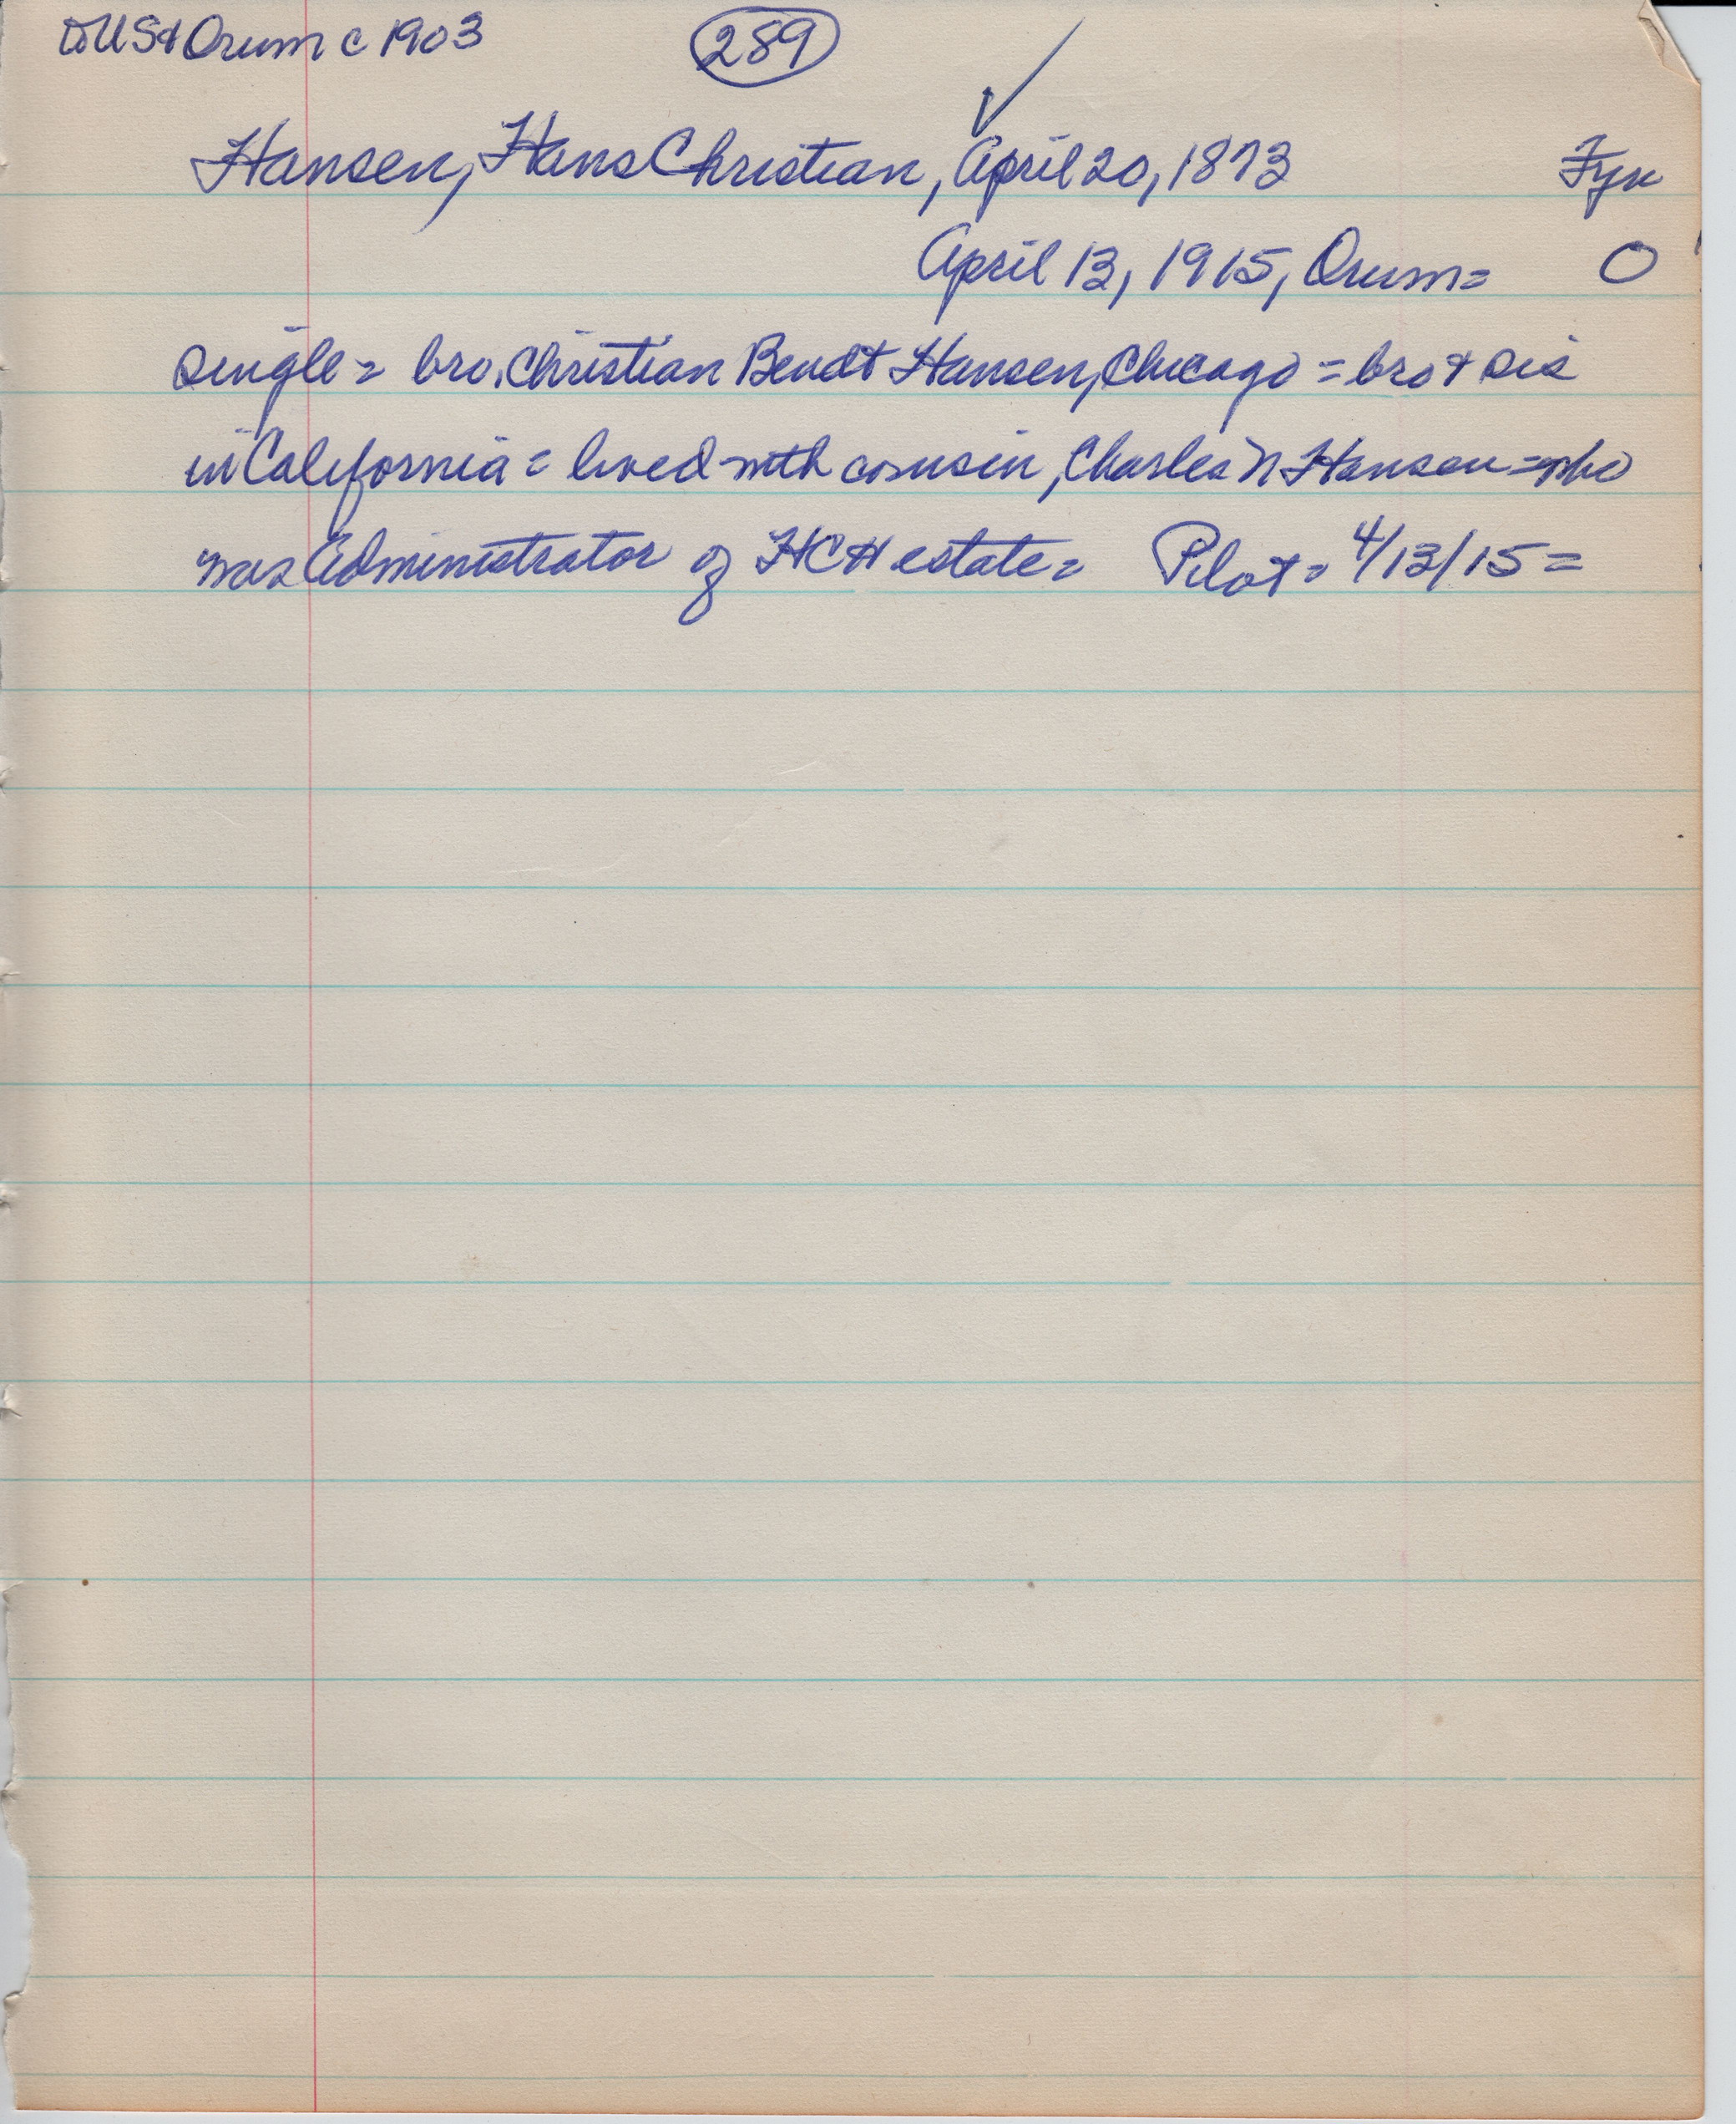 to US & Orum c 1903
289
Hansen, Hans Christian, April 20, 1873 Fyn
April 13, 1915, Orum = O
single = bro. Christian Bendt Hansen, Chicago = bro & sis
in California = lived with cousin, Charles N Hansen = who
was Administrator of HCH estate = Pilot = 4/13/15 =